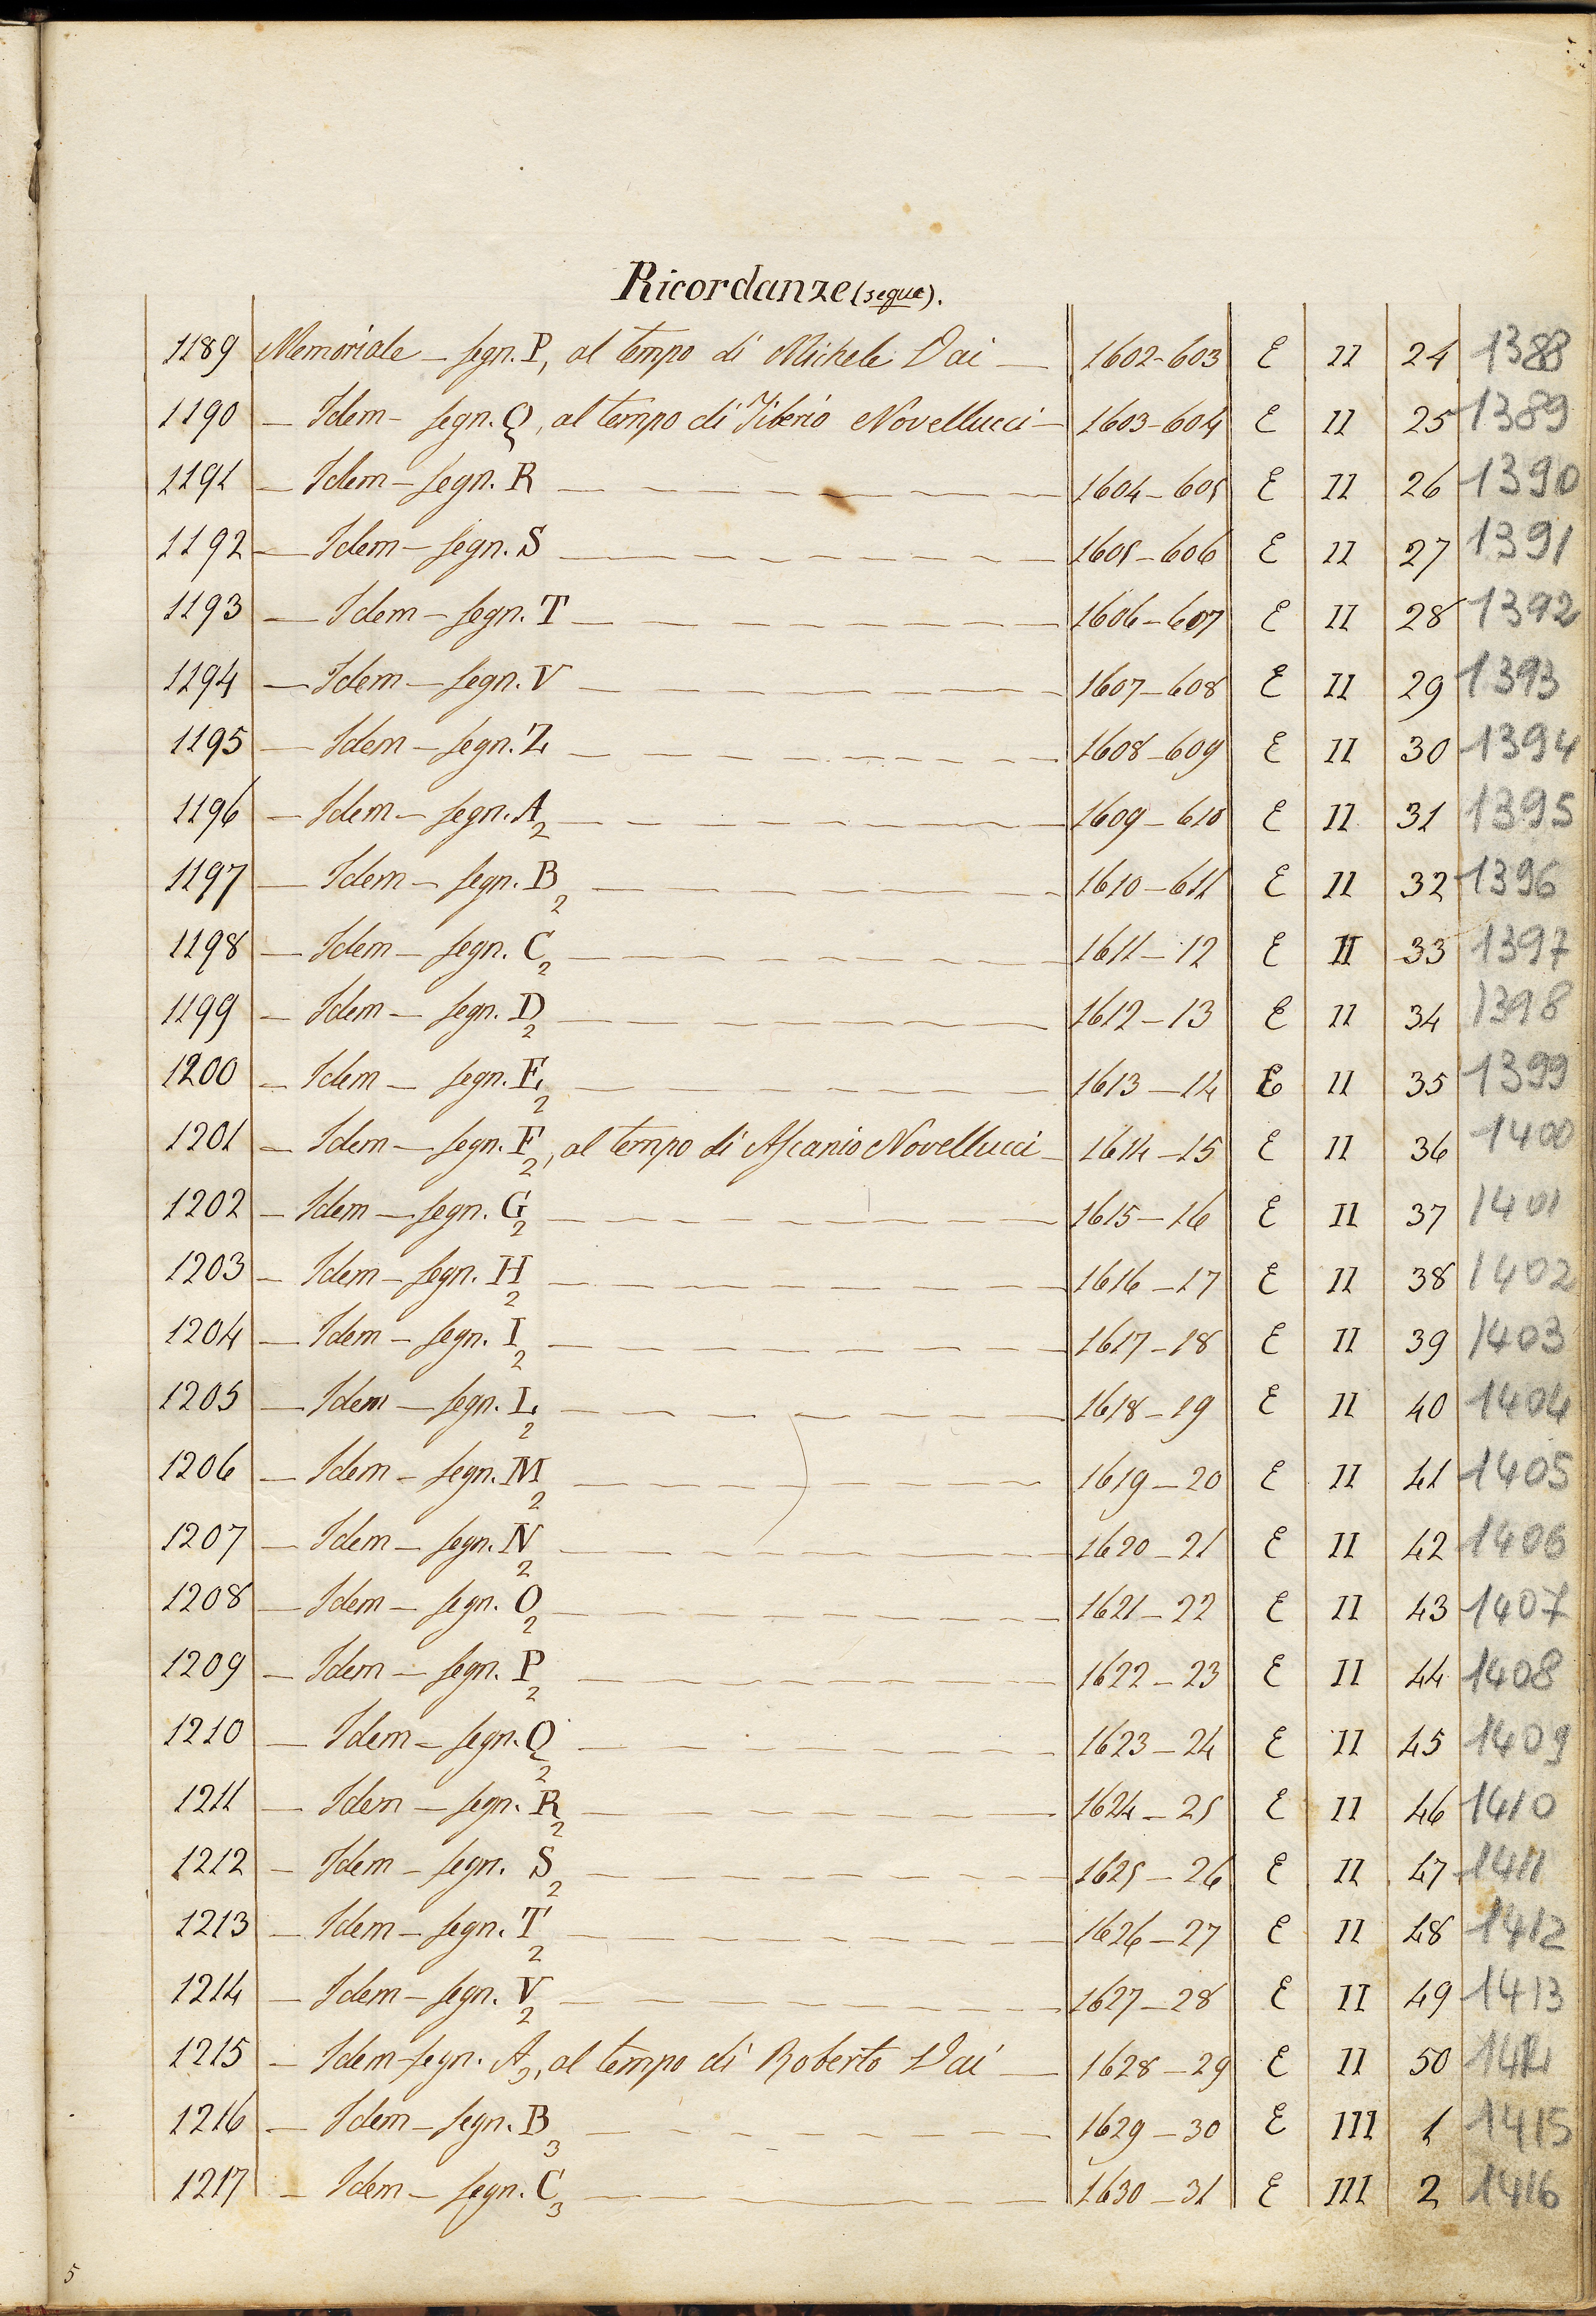 Ricordanze (segue).
1189 Memoriale – segn. P, al tempo di Michele Dai — 1602-603 E II 24 1388
1190 – Idem – segn. Q, al tempo di Tiberio Novellucci – 1603-604 E II 25 1389
1191 – Idem – segn. R 1604-605 E II 26 1390
1192 – Idem – segn. S 1605-606 E II 27 1391
1193 – Idem – segn. T 1606-607 E II 28 1392
1194 – Idem – segn. V 1607-608 E II 29 1393
1195 – Idem – segn. Z 1608-609 E II 30 1394
1196 – Idem – segn. A2 1609-610 E II 31 1395
1197 – Idem – segn. B2 1610-611 E II 32 1396
1198 – Idem – segn. C2 1611-12 E II 33 1397
1199 – Idem – segn. D2 1612-13 E II 34 1398
1200 – Idem – segn. E2 1613-14 E II 35 1399
1201 – Idem – segn. F2, al tempo di Ascanio Novellucci – 1614-15 E II 36 1400
1202 – Idem – segn. G2 1615-16 E II 37 1401
1203 – Idem – segn. H2 1616-17 E II 38 1402
1204 – Idem – segn. I2 1617-18 E II 39 1403
1205 – Idem – segn. L2 1618-19 E II 40 1404
1206 – Idem – segn. M2 1619-20 E II 41 1405
1207 – Idem – segn. N2 1620-21 E II 42 1406
1208 – Idem – segn. O2 1621-22 E II 43 1407
1209 – Idem – segn. P2 1622-23 E II 44 1408
1210 – Idem – segn. Q2 1623-24 E II 45 1409
1211 – Idem – segn. R2 1624-25 E II 46 1410
1212 – Idem – segn. S2 1625-26 E II 47 1411
1213 – Idem – segn. T2 1626-27 E II 48 1412
1214 – Idem – segn. V2 1627-28 E II 49 1413
1215 – Idem – segn. A3, al tempo di Roberto Dai — 1628-29 E II 50 1414
1216 – Idem – segn. B3 1629-30 E III 1 1415
1217 – Idem – segn. C3 1630-31 E III 2 1416
5